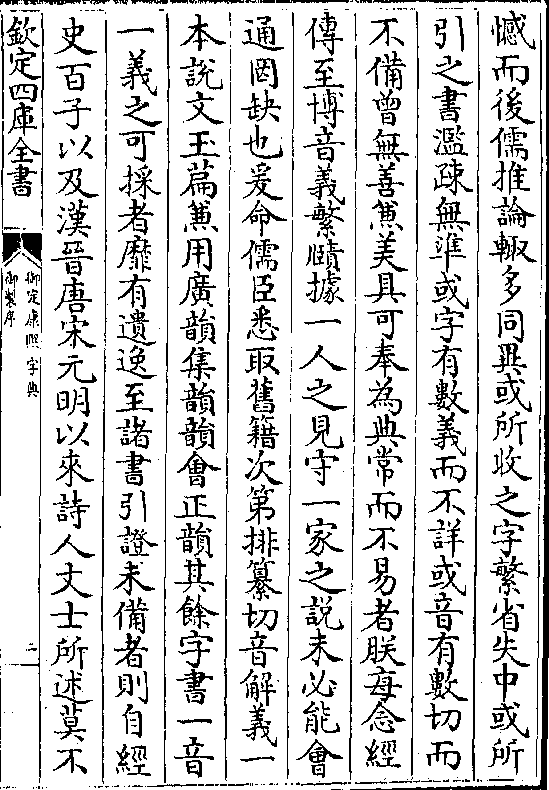 憾而後儒推論輙多同異或所收之字繁省失中或所
引之書濫疎無準或字有數義而不詳或音有數切而
不備曾無善兼美具可奉為典常而不易者朕每念經
傳至博音義繁賾據一人之見守一家之說未必能會
通罔缺也爰命儒臣悉取舊籍次第排纂切音解義一
本說文玉篇兼用廣韻集韻韻會正韻其餘字書一音
一義之可採者靡有遺逸至諸書引證未備者則自經
史百子以及漢晉唐宋元明以來詩人文士所述莫不
欽定四庫全書
御定康熙字典
御製序
二